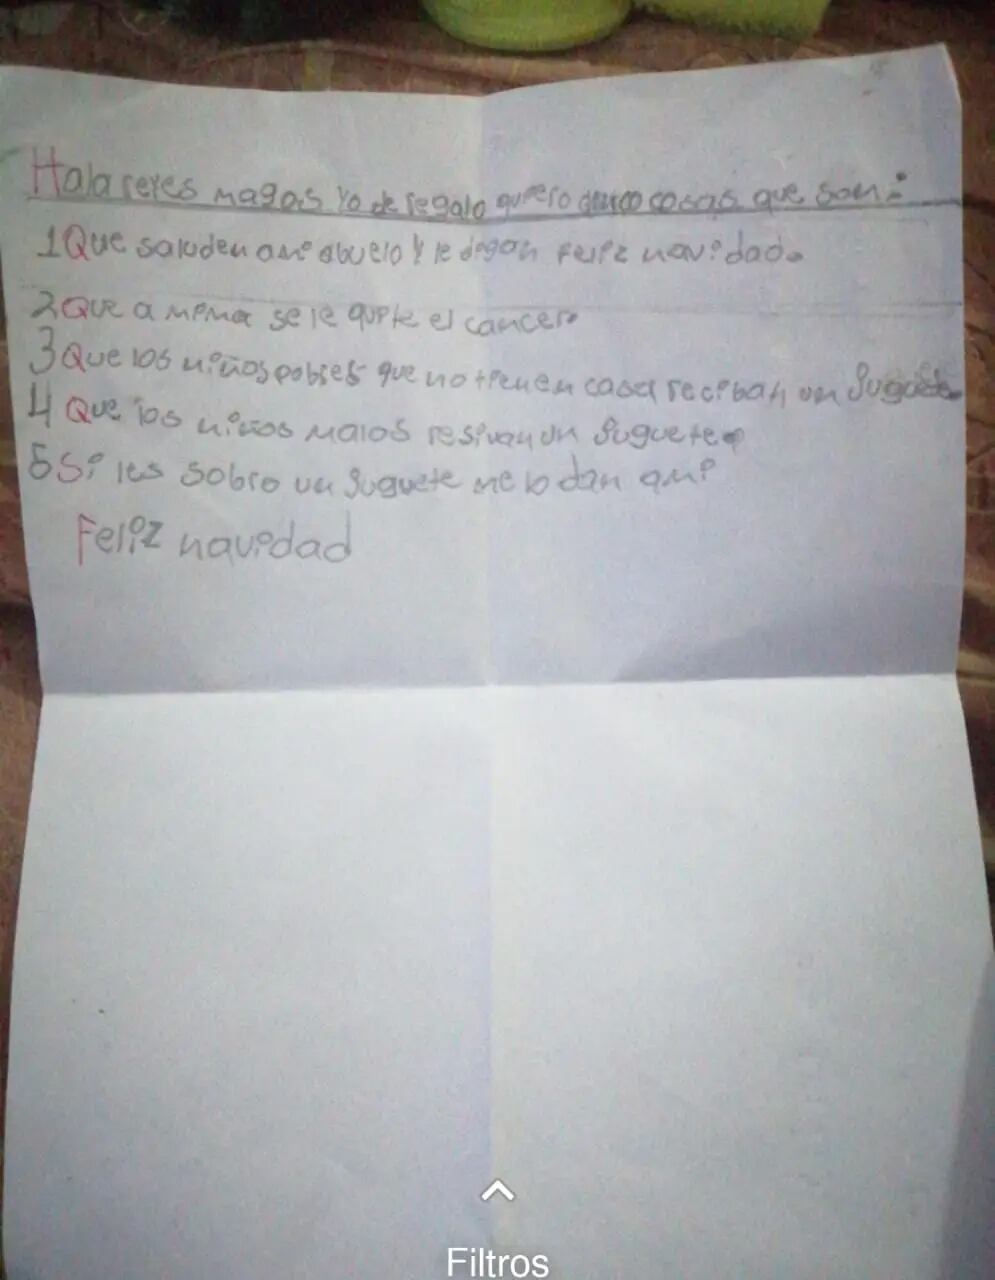 Hola reyes magos Yo de regalo quiero cosas que son:
1 Que saluden a mi abuelo y le digan feliz navidad.
2 Que a mema se le quite el cancer.
3 Que los niños pobres que no tienen casa reciban un Juguete.
4 Que los niños malos resivan un Juguete.
5 Si les sobro un Juguete me lo dan a mi
Feliz navidad
Filtros